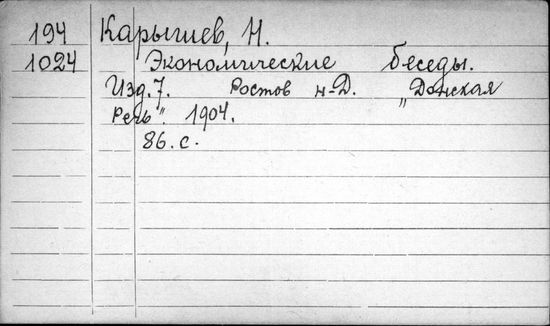 194 Карышев, Н.
1024 Экономические беседы.
Изд. 7. Ростов н-Д. „Донская
Речь". 1904.
86. с.